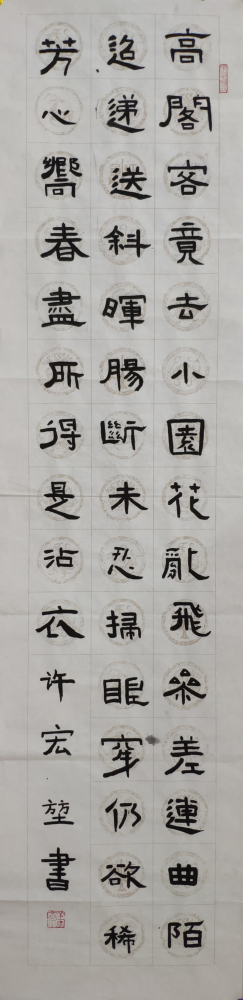 高閣客竟去小園花亂飛參差連曲陌
迢递送斜暉腸斷未忍掃眼穿仍欲稀
芳心嚮春盡所得是沾衣许宏堃書